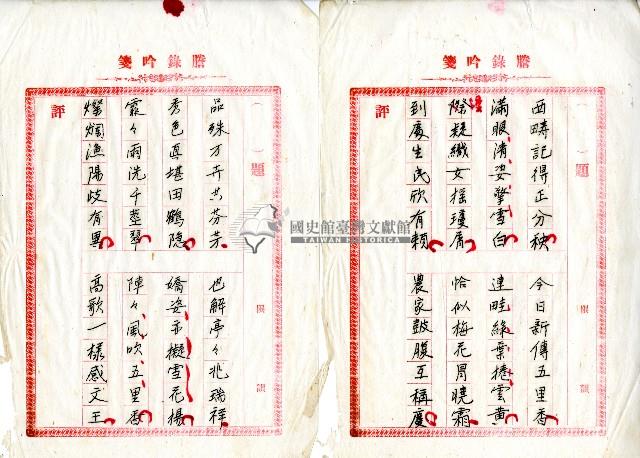 謄錄吟箋
題
限
韻
西疇記得正分秧
今日新傳五里香
滿眼清姿擎雪白
連畦綠葉捲雲黃
際疑織女搖瓊屑
恰似梅花冒曉霜
到處生民欣有賴
農家鼓腹互稱慶
評
謄錄吟箋
題
限
韻
品殊万卉共芬芳
也解亭々兆瑞祥
秀色真堪田鶴隱
嬌姿亦擬雪花揚
霏々雨洗千莖翠
陣々風吹五里香
燦爛漁陽歧有異
高歌一樣感文王
評
國史館臺灣文獻館
TAIWAN HISTORICA